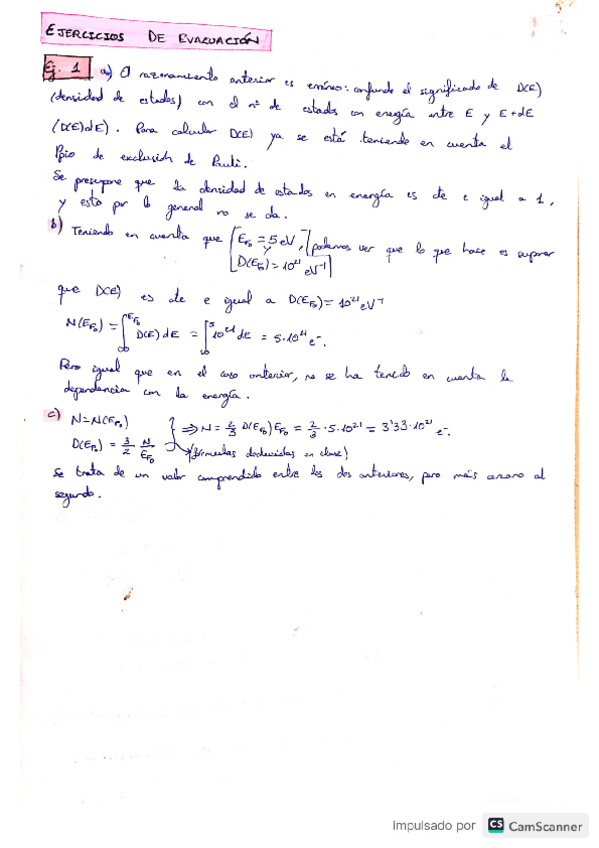 EJERCICIOS DE EVALUACIÓN
Ej. 1 a) El razonamiento anterior es erróneo: confunde el significado de D(E)
(densidad de estados) con el nº de estados con energía entre E y E+dE
(D(E)dE). Para calcular D(E) ya se está teniendo en cuenta el
Ppio de exclusión de Pauli.
Se presupone que la densidad de estados en energía es cte e igual a 1,
y esto por lo general no se da.
b) Teniendo en cuenta que [E_F0 = 5 eV, y D(E_F0) = 10^21 eV^-1] podemos ver que lo que hace es suponer
que D(E) es cte e igual a D(E_F0) = 10^21 eV^-1
N(E_F0) = ∫_0^E_F0 D(E) dE = ∫_0^5 10^21 dE = 5·10^21 e^-.
Pero igual que en el caso anterior, no se ha tenido en cuenta la
dependencia con la energía.
c) N = N(E_F0)
D(E_F0) = 3/2 N/E_F0 } ⇒ N = 2/3 D(E_F0) E_F0 = 2/3 · 5·10^21 = 3'33·10^21 e^-.
(fórmulas deducidas en clase)
Se trata de un valor comprendido entre los dos anteriores, pero más cercano al
segundo.
Impulsado por CS CamScanner